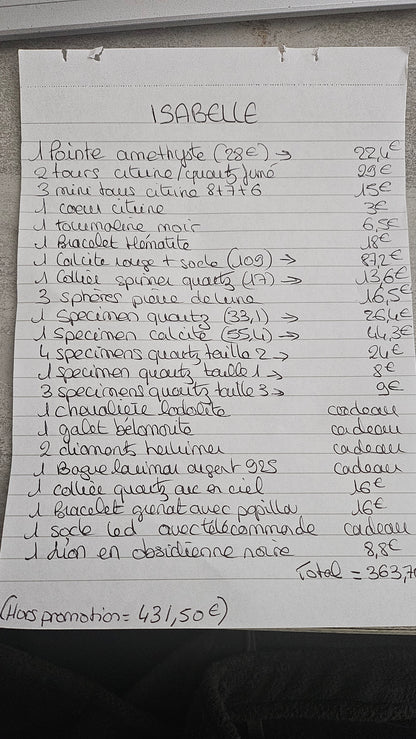 ISABELLE
1 Pointe amethyste (28€) → 22,4€
2 tours citrine/quartz fumé 29€
3 mini tours citrine 8+7+6 15€
1 coeur citrine 3€
1 tourmaline noir 6,5€
1 Bracelet Hématite 18€
1 Calcite rouge + socle (109) → 87,2€
1 Collier spinner quartz (17) → 13,6€
3 sphères pierre de lune 16,5€
1 Specimen quartz (33,1) → 26,4€
1 Specimen calcite (55,4) → 44,3€
4 specimens quartz taille 2 → 24€
1 specimen quartz taille 1 → 8€
3 specimens quartz taille 3 → 9€
1 chevalière lodolite cadeau
1 galet bélomorite cadeau
2 diamants herkimer cadeau
1 Bague larimar argent 925 cadeau
1 collier quartz arc en ciel 16€
1 Bracelet grenat avec papillon 16€
1 socle led avec télécommande cadeau
1 lion en obsidienne noire 8,8€
Total = 363,70
(Hors promotion = 431,50€)